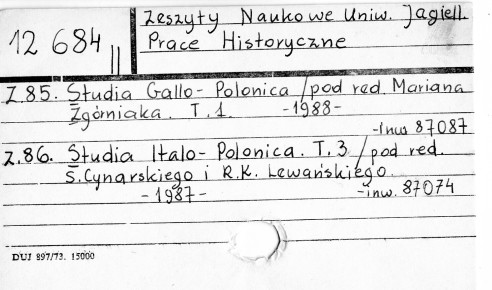 12 684 ||
Zeszyty Naukowe Uniw. Jagiell.
Prace Historyczne
Z.85. Studia Gallo-Polonica /pod red. Mariana
Zgórniaka. T.1. -1988-
-inw 87087
Z.86. Studia Italo-Polonica. T.3 /pod red.
S.Cynarskiego i R.K. Lewańskiego.
-1987- -inw. 87074
DUJ 897/73. 15000